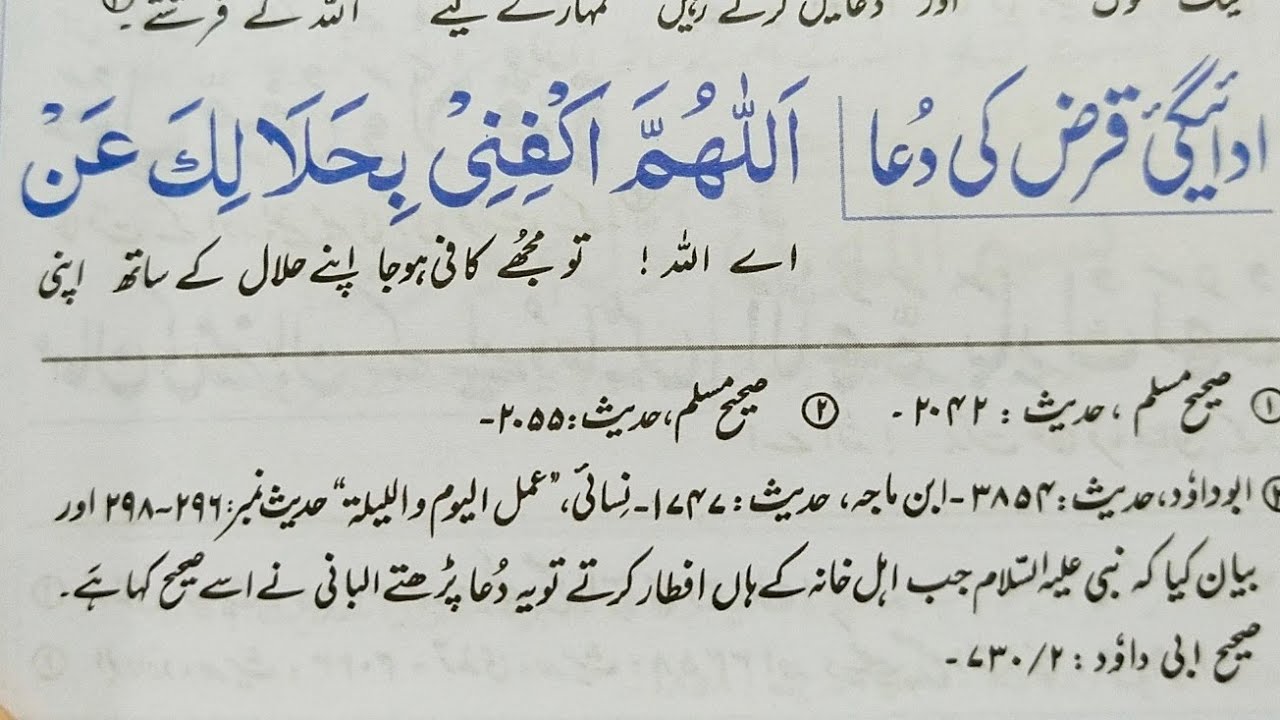 اور دعائیں کرتے رہیں تمہارے لیے اللہ کے فرشتے۔ ①
ادائیگیٔ قرض کی دُعا
اَللّٰهُمَّ اكْفِنِيْ بِحَلَا لِكَ عَنْ
اے اللہ ! تو مجُھے کافی ہوجا اپنے حلال کے ساتھ اپنی
① صحیح مسلم ، حدیث : ۲۰۴۲۔ ② صحیح مسلم، حدیث: ۲۰۵۵۔
ابوداوٗد، حدیث: ۳۸۵۴۔ ابن ماجہ، حدیث: ۱۷۴۷۔ نِسائی، ”عمل الیوم واللیلة“ حدیث نمبر: ۲۹۶~۲۹۸ اور
بیان کیا کہ نبی علیہ السّلام جب اہل خانہ کے ہاں افطار کرتے تو یہ دُعا پڑھتے البانی نے اسے صحیح کہا ہَے۔
صحیح ابی داوٗد : ۷۳۰/۲۔